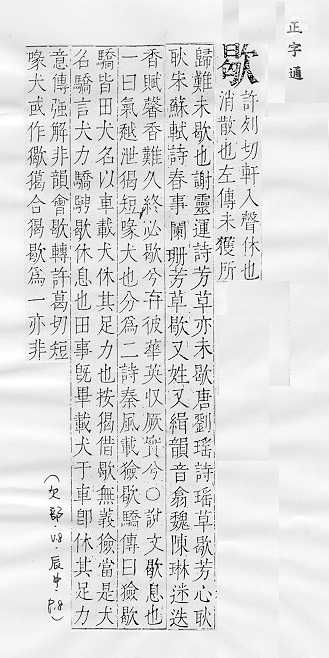 正字通
歇
許列切軒入聲休也
消散也左傳未獲所
歸難未歇也謝靈運詩芳草亦未歇唐劉瑶詩瑶草歇芳心耿
耿宋蘇軾詩春事闌珊芳草歇又姓又緝韻音翕魏陳琳迷迭
香賦馨香難久終必歇兮弃彼華英収厥實兮〇說文歇息也
一曰氣越泄猲短喙犬也分爲二詩秦風載獫歇驕傳曰獫歇
驕皆田犬名以車載犬休其足力也按猲借歇無義獫當是犬
名驕言犬力驕騁歇休息也田事旣畢載犬于車卽休其足力
意傳强解非韻會歇轉許葛切短
喙犬或作獥獦合猲歇爲一亦非
(欠部 U8.辰中 P.8)